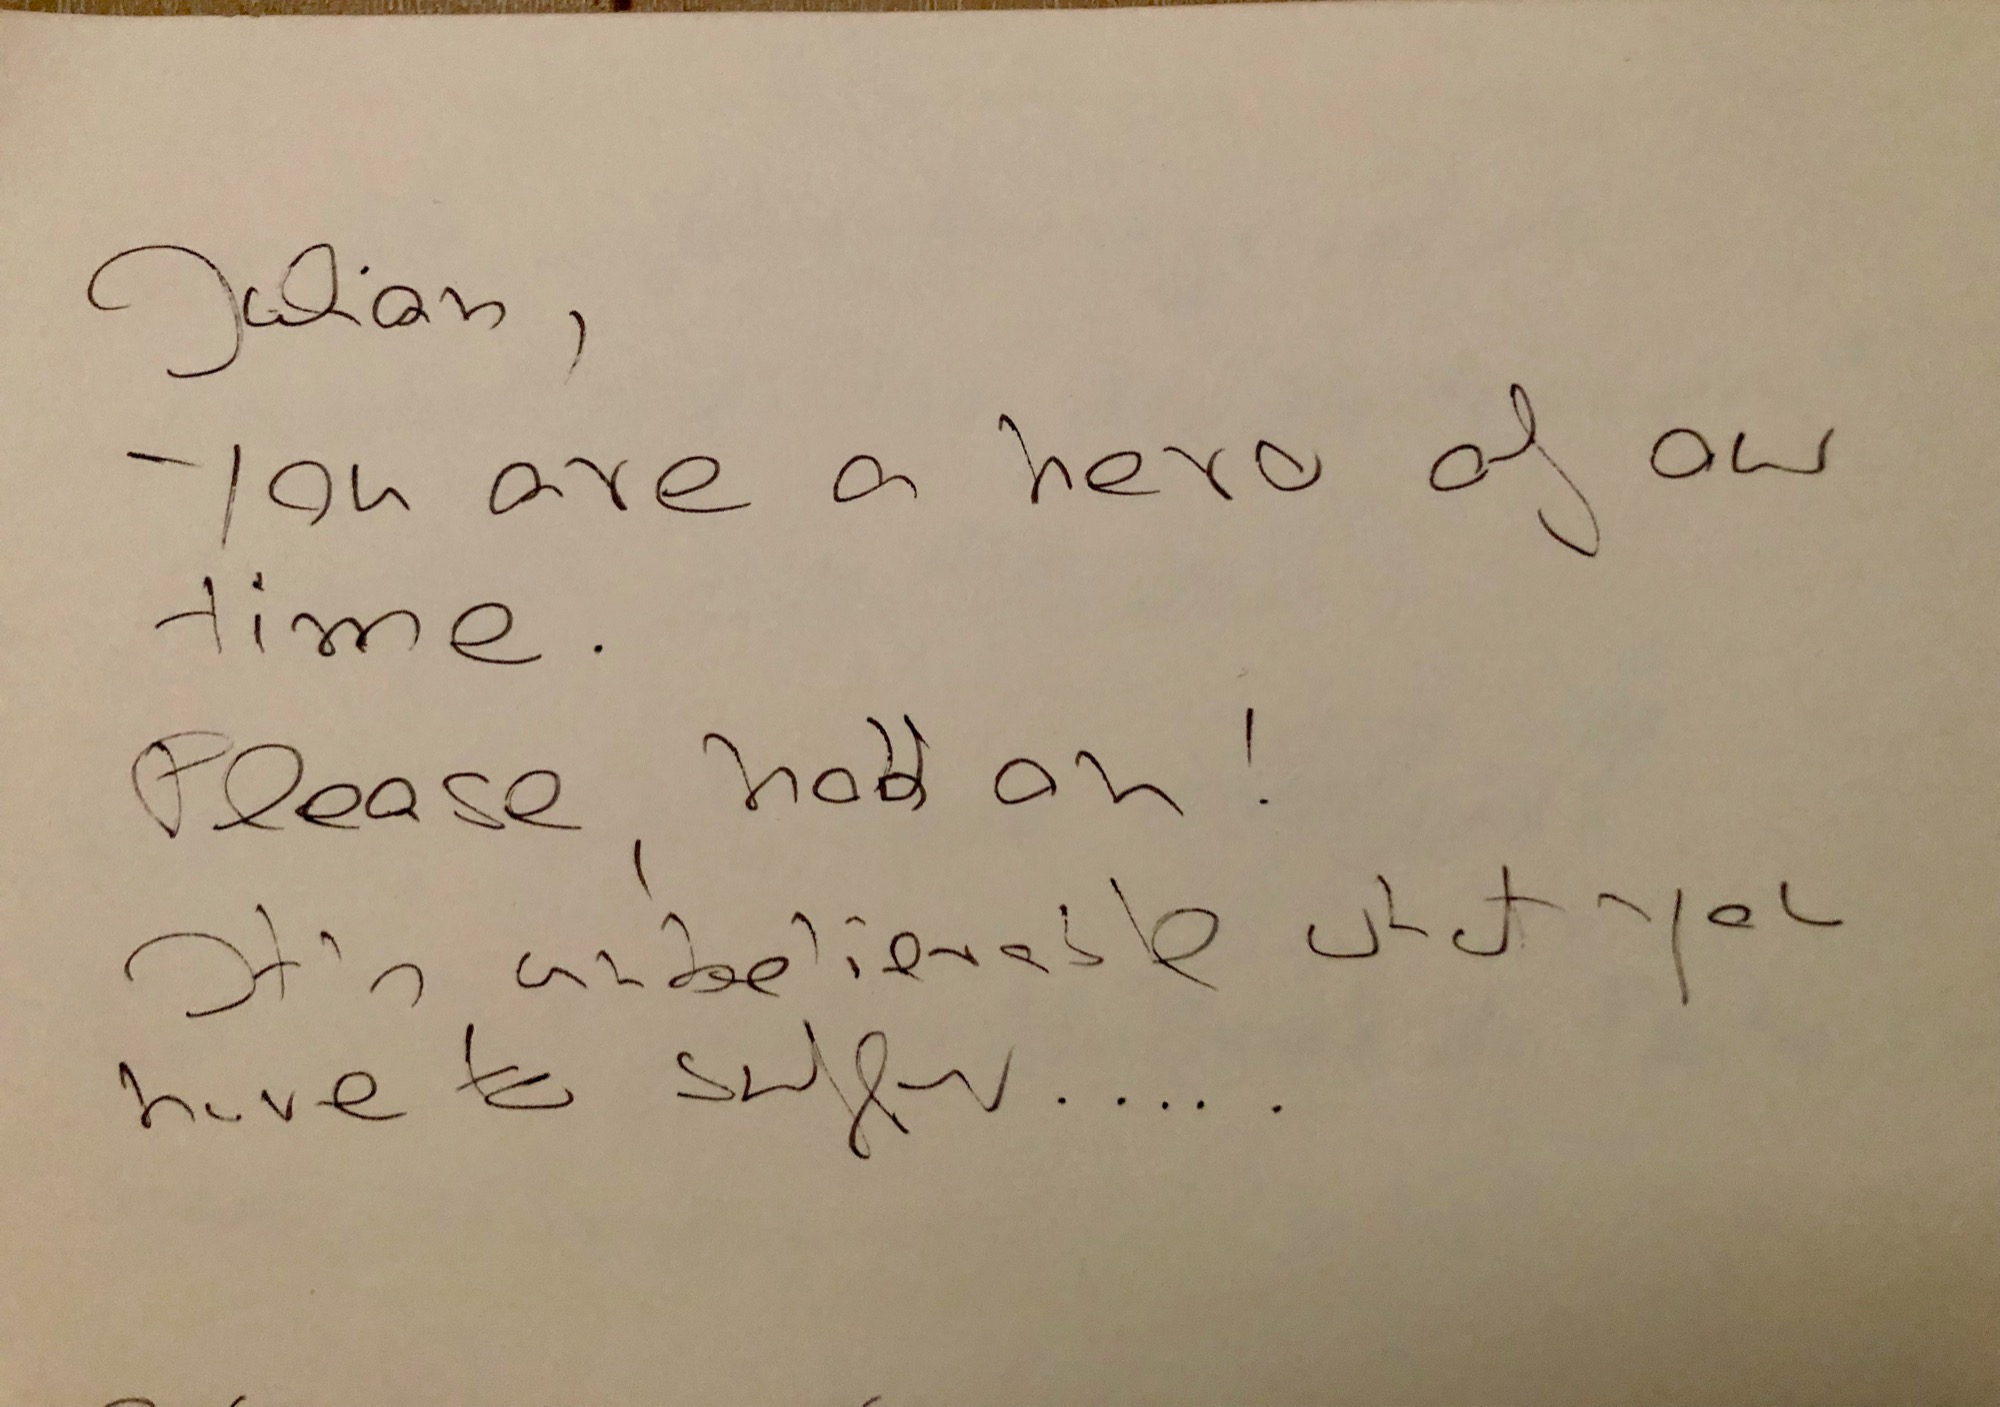 Julian,
You are a hero of our
time.
Please, hold on!
It's unbelievable what you
have to suffer......